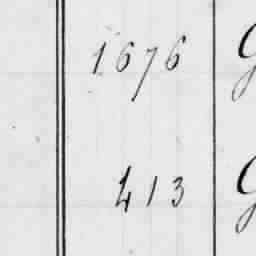 1676
413